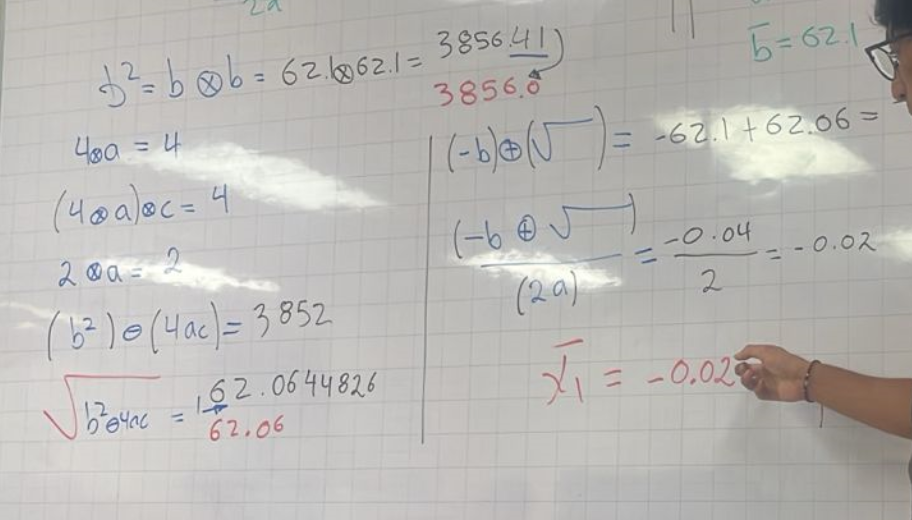 2a
b² = b ⊗ b = 62.1 ⊗ 62.1 = 3856.41
3856.0
4⊗a = 4
(4⊗a)⊗c = 4
2⊗a = 2
(b²)⊖(4ac) = 3852
√b²⊖4ac = 62.0644826
62.06
b̄ = 62.1
(-b)⊕(√ ) = -62.1 + 62.06 =
(-b ⊕ √ ) / (2a) = -0.04 / 2 = -0.02
x̄₁ = -0.02